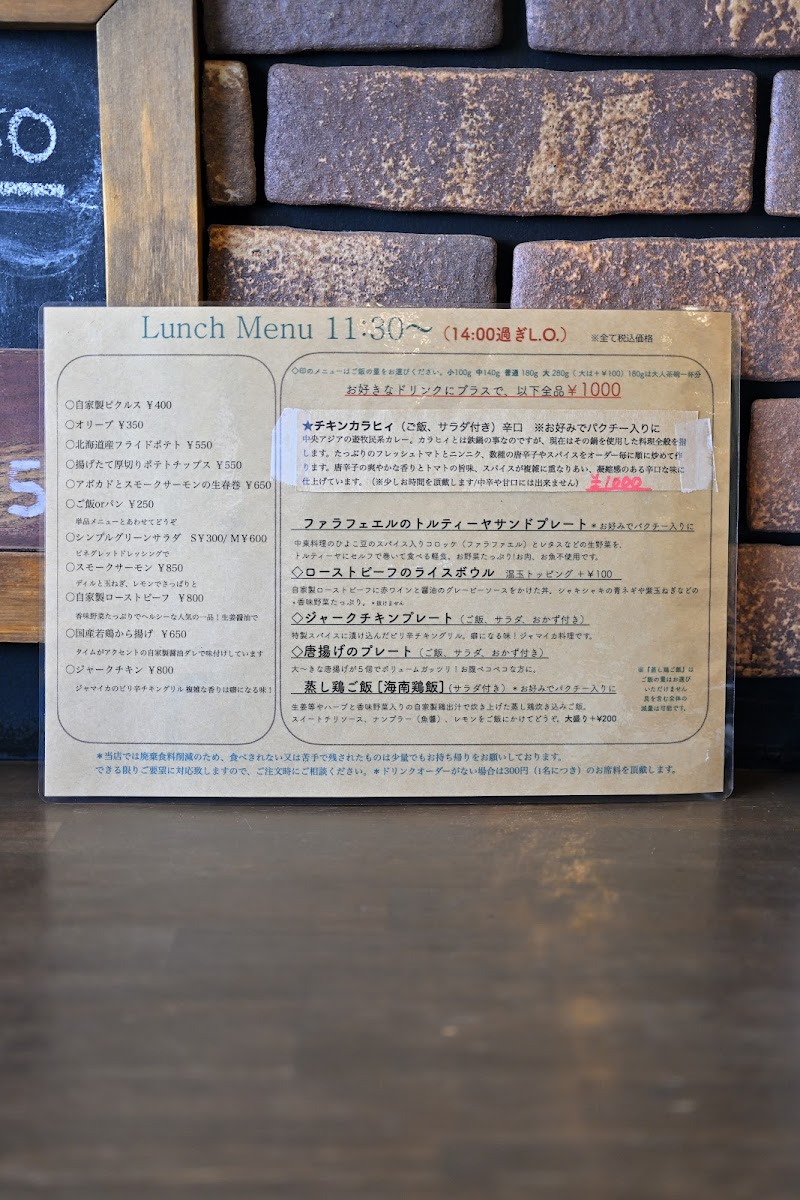 Lunch Menu 11:30～ （14:00過ぎL.O.） ※全て税込価格
○自家製ピクルス ￥400
○オリーブ ￥350
○北海道産フライドポテト ￥550
○揚げたて厚切りポテトチップス ￥550
○アボカドとスモークサーモンの生春巻 ￥650
○ご飯orパン ￥250
単品メニューとあわせてどうぞ
○シンプルグリーンサラダ S￥300/ M￥600
ビネグレットドレッシングで
○スモークサーモン ￥850
ディルと玉ねぎ、レモンでさっぱりと
○自家製ローストビーフ ￥800
香味野菜たっぷりでヘルシーな人気の一品！生姜醤油で
○国産若鶏から揚げ ￥650
タイムがアクセントの自家製醤油ダレで味付けしています
○ジャークチキン ￥800
ジャマイカのピリ辛チキングリル 複雑な香りは癖になる味！
◇印のメニューはご飯の量をお選びください。小100g 中140g 普通 180g 大 280g（ 大は＋￥100）180gは大人茶碗一杯分
お好きなドリンクにプラスで、以下全品￥1000
★チキンカラヒィ（ご飯、サラダ付き）辛口 ※お好みでパクチー入りに
中央アジアの遊牧民系カレー。カラヒィとは鉄鍋の事なのですが、現在はその鍋を使用した料理全般を指
します。たっぷりのフレッシュトマトとニンニク、数種の唐辛子やスパイスをオーダー毎に順に炒めて作
ります。唐辛子の爽やかな香りとトマトの旨味、スパイスが複雑に重なりあい、凝縮感のある辛口な味に
仕上げています。（※少しお時間を頂戴します/中辛や甘口には出来ません） ￥1000
ファラフェエルのトルティーヤサンドプレート＊お好みでパクチー入りに
中東料理のひよこ豆のスパイス入りコロッケ（ファラファエル）とレタスなどの生野菜を、
トルティーヤにセルフで巻いて食べる軽食。お野菜たっぷり!お肉、お魚不使用です。
◇ローストビーフのライスボウル 温玉トッピング ＋￥100
自家製ローストビーフに赤ワインと醤油のグレービーソースをかけた丼。シャキシャキの青ネギや紫玉ねぎなどの
＊香味野菜たっぷり。＊抜けません
◇ジャークチキンプレート（ご飯、サラダ、おかず付き）
特製スパイスに漬け込んだピリ辛チキングリル。癖になる味！ジャマイカ料理です。
◇唐揚げのプレート（ご飯、サラダ、おかず付き）
大～きな唐揚げが５個でボリュームガッツリ！お腹ペコペコな方に。
蒸し鶏ご飯［海南鶏飯］（サラダ付き）＊お好みでパクチー入りに
生姜等やハーブと香味野菜入りの自家製鶏出汁で炊き上げた蒸し鶏炊き込みご飯。
スイートチリソース、ナンプラー（魚醤）、レモンをご飯にかけてどうぞ。大盛り＋￥200
※『蒸し鶏ご飯』は
ご飯の量はお選び
いただけません
具を含む全体の
減量は可能です。
＊当店では廃棄食料削減のため、食べきれない又は苦手で残されたものは少量でもお持ち帰りをお願いしております。
できる限りご要望に対応致しますので、ご注文時にご相談ください。＊ドリンクオーダーがない場合は300円（1名につき）のお席料を頂戴します。
5